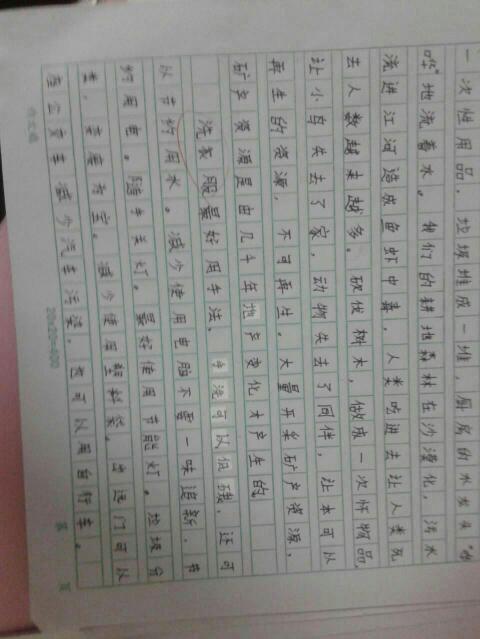 一次性用品，垃圾堆成一堆，厨房的水龙头“哗
哗”地流着水。我们的耕地森林在沙漠化，污水
流进江河造成鱼虾中毒，人类吃进去让人类死
去人数越来越多。砍伐树木，做成一次性物品，
让小鸟失去了家，动物失去了同伴，让本可以
再生的资源，不可再生。大量开采矿产资源，
矿产资源是由几千年地产变化才产生的
洗衣服最好用手洗。手洗可以低碳。还可
以节约用水。减少使用电脑不要一味追新。节
约用电。随手关灯。最好使用节能灯。垃圾分
类，变废为宝。减少使用塑料袋。出远门可以
坐公交车减少汽车污染。也可以用自行车。
20×20=400
作文纸
第 页